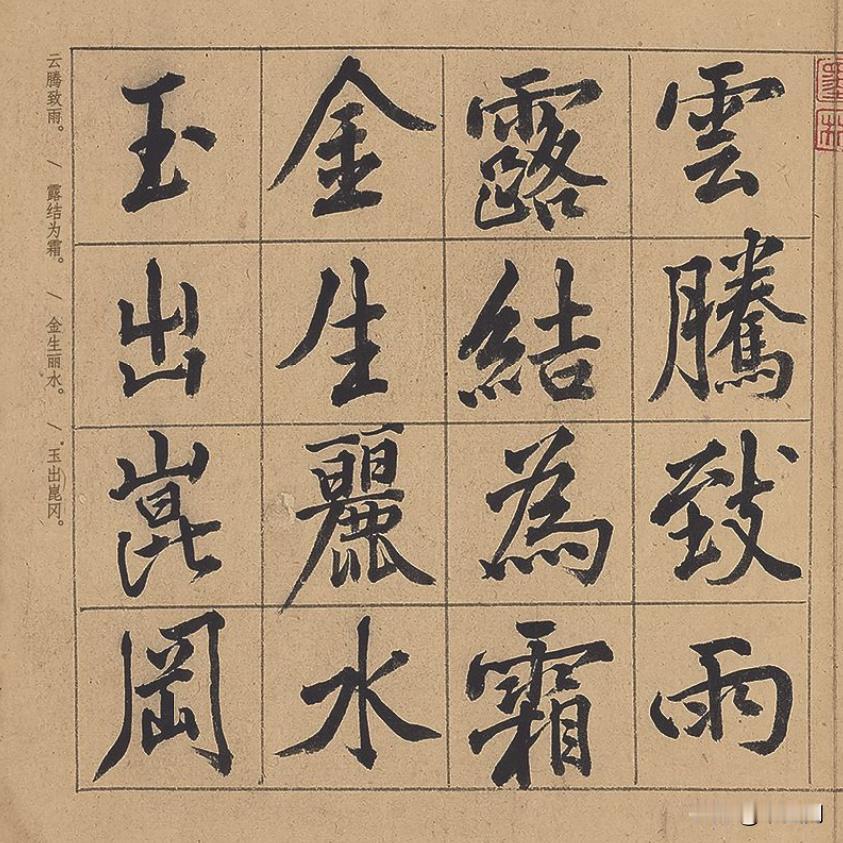 雲騰致雨
露結為霜
金生麗水
玉出崑岡
云腾致雨。\露结为霜。\金生丽水。\玉出崑冈。